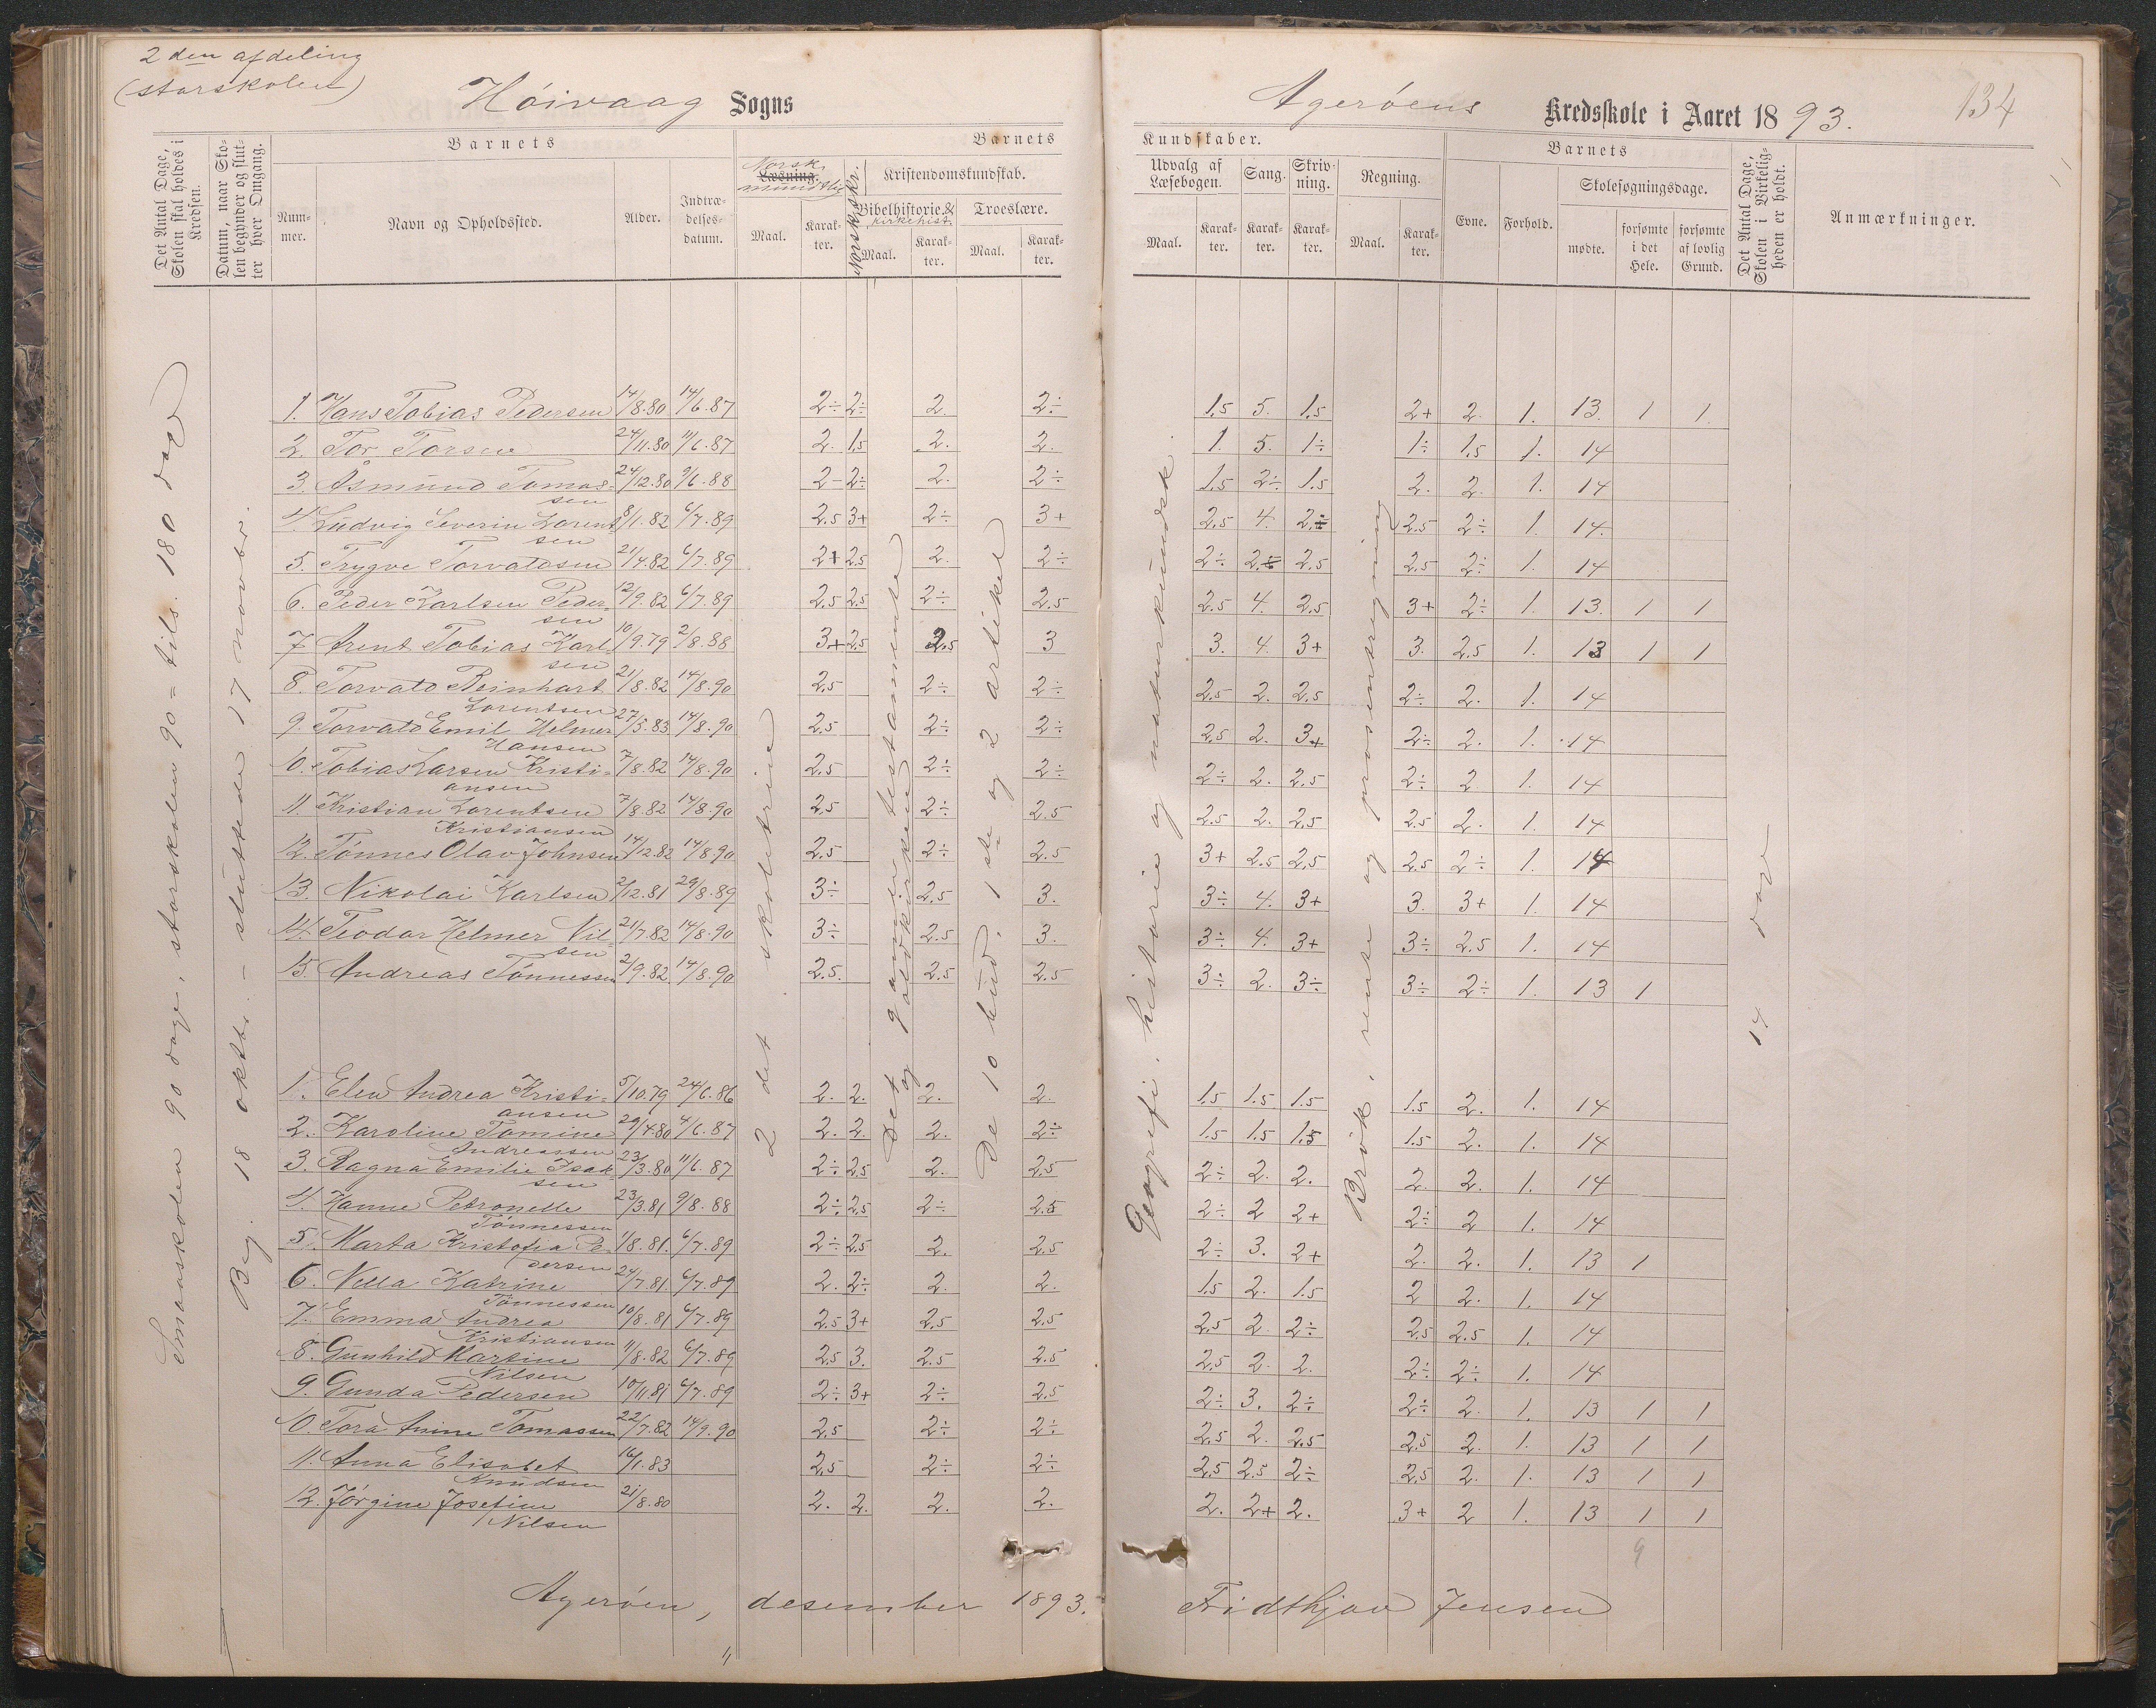 2 den afdeling
(storskolen)
Höivaag Sogns
Agerøens Kredsskole i Aaret 1893.
134
Det Antal Dage, Skolen skal holdes i Kredsen.
Datum, naar Skolen begynder og slutter hver Omgang.
Barnets
Nummer.
Navn og Opholdssted.
Alder.
Indtrædelsesdatum.
Barnets
Norsk
Læsning.
mundtlig
Maal.
Karakter.
Norsk skr.
Kristendomskundskab.
Bibelhistorie. &
kirkehist.
Maal.
Karakter.
Troeslære.
Maal.
Karakter.
Kundskaber.
Udvalg af Læsebogen.
Maal.
Karakter.
Sang.
Karakter.
Skrivning.
Karakter.
Regning.
Maal.
Karakter.
Barnets
Evne.
Forhold.
Skolesøgningsdage.
mødte.
forsømte i det Hele.
forsømte af lovlig Grund.
Det Antal Dage, Skolen i Virkeligheden er holdt.
Anmærkninger.
Smaaskolen 90 dage, storskolen 90 = tils. 180 dage
Beg. 18 oktbr. – sluttede 17 novbr.
2 det skoletrin
Det gamle testamente
og oldkirken
De 10 bud, 1ste og 2 artikel
Geografi, historie og naturkundsk.
Brøk, rente og prosentregning
14 dage
1. Hans Tobias Pedersen 14/8.80 14/6.87 2÷ 2÷ 2 2÷ 1,5 5. 1,5 2+ 2. 1. 13. 1 1
2. Tor Torsen 24/11.80 11/6.87 2. 1,5 2. 2. 1. 5. 1÷ 1÷ 1,5 1. 14
3. Åsmund Tomassen 24/12.80 9/6.88 2- 2÷ 2. 2÷ 1.5 2÷ 1.5 2. 2. 1. 14
4. Ludvig Severin Lorentsen 8/1.82 6/7.89 2.5 3+ 2÷ 3+ 2,5 4. 2÷ 2,5 2÷ 1. 14.
5. Trygve Torvaldsen 21/4.82 6/7.89 2+ 2.5 2. 2÷ 2÷ 2÷ 2.5 2,5 2÷ 1. 14
6. Peder Karlsen Pedersen 12/9.82 6/7.89 2.5 2.5 2÷ 2.5 2.5 4. 2.5 3+ 2÷ 1. 13. 1 1
7 Arent Tobias Karlsen 10/9.79 2/8.88 3+ 2.5 2,5 3 3. 4. 3+ 3. 2.5 1. 13 1 1
8. Torvald Reinhart Lorentsen 21/8.82 14/8.90 2,5 2÷ 2÷ 2,5 2. 2,5 2÷ 2. 1. 14
9. Torvald Emil Helmer Hansen 27/5.83 14/8.90 2,5 2÷ 2÷ 2,5 2. 3+ 2÷ 2. 1. 14
10. Tobias Larsen Kristiansen 7/8.82 14/8.90 2,5 2÷ 2÷ 2÷ 2. 2.5 2÷ 2 1. 14
11. Kristian Lorentsen Kristiansen 7/8.82 14/8.90 2,5 2÷ 2.5 2.5 2. 2,5 2.5 2. 1. 14
12. Tønnes Olav Johnsen 14/12.82 14/8.90 2.5 2÷ 2.5 3+ 2.5 2,5 2,5 2÷ 1. 14
13. Nikolai Karlsen 2/12.81 29/8.89 3÷ 2,5 3. 3÷ 4. 3+ 3. 3+ 1. 14
14. Teodor Helmer Nilsen 21/7.82 14/8.90 3÷ 2.5 3. 3÷ 4. 3+ 3÷ 2.5 1. 14
15. Andreas Tønnessen 2/9.82 14/8.90 2.5. 2.5 2.5 3÷ 2. 3÷ 3÷ 2÷ 1. 13 1
1. Elen Andrea Kristiansen 5/10.79 24/6.86 2. 2. 2. 2. 1.5 1.5 1.5 1.5 2. 1. 14
2. Karoline Tomine Andreassen 29/4.80 4/6.87 2. 2. 2. 2÷ 1.5 1.5 1.5 1.5 2. 1. 14
3. Ragna Emilie Isaksen 23/3.80 11/6.87 2÷ 2,5 2. 2,5 2÷ 2. 2. 2. 2. 1. 14
4. Hanne Petronelle Tønnessen 23/3.81 9/8.88 2÷ 2,5 2÷ 2.5 2÷ 2 2+ 2÷ 2 1. 14
5. Marta Kristofia Pedersen 1/8.81. 6/7.89 2÷ 2,5 2. 2,5 2÷ 3. 2+ 2. 2. 1. 13 1
6. Nella Katrine Tønnessen 24/7.81. 6/7.89 2. 2÷ 2. 2. 1.5 2. 1.5 2 2. 1. 14
7. Emma Andrea Kristiansen 10/8.81 6/7.89 2.5 3+ 2,5 2.5 2,5 2 2÷ 2,5 2.5 1. 14
8. Gunhild Martine Nilsen 11/8.82 6/7.89 2.5 3. 2.5 2.5 2,5 2. 2. 2÷ 2÷ 1. 14
9. Gunda Pedersen 10/11.81 6/7.89 2÷ 3+ 2÷ 2,5 2÷ 3. 2÷ 2÷ 2. 1. 13 1 1
10. Tora Anine Tomassen 22/7.82 14/9.90 2,5 2÷ 2÷ 2,5 2. 2,5 2,5 2. 1. 13 1 1
11. Anna Elisabet Knudsen 16/1.83 2,5 2÷ 2÷ 2,5 2.5 2÷ 2,5 2. 1. 13 1 1
12. Jørgine Josefine Nilsen 21/8.80 2. 2. 2. 2. 2. 2+ 2. 3+ 2 1. 13 1 1
9
Agerøen, desember 1893. Fridthjov Jensen